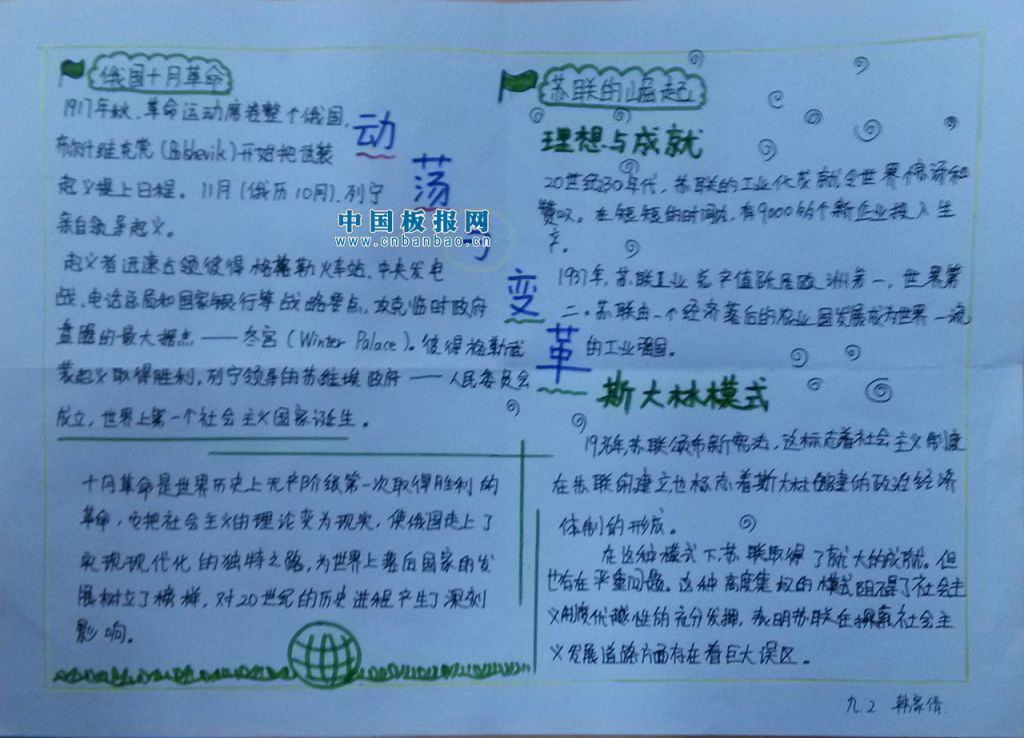 俄国十月革命
1917年秋,革命运动席卷整个俄国,
布尔什维克党(Bolshevik)开始把武装
起义提上日程。11月(俄历10月),列宁
亲自领导起义。
起义者迅速占领彼得格勒火车站、中央发电
战、电话总局和国家银行等战略要点,攻克临时政府
盘踞的最大据点——冬宫(Winter Palace)。彼得格勒武
装起义取得胜利,列宁领导的苏维埃政府——人民委员会
成立,世界上第一个社会主义国家诞生。
十月革命是世界历史上无产阶级第一次取得胜利的
革命,它把社会主义的理论变为现实,使俄国走上了
实现现代化的独特之路,为世界上落后国家的发
展树立了榜样,对20世纪的历史进程产生了深刻
影响。
动
荡
与
变
革
中国板报网
www.cnbanbao.cn
苏联的崛起
理想与成就
20世纪30年代,苏联的工业化成就令世界惊讶和
赞叹。在短短的时间,有9000多个新企业投入生
产。
1937年,苏联工业总产值跃居欧洲第一,世界第
二。苏联由一个经济落后的农业国发展成为世界一流
的工业强国。
斯大林模式
1936年苏联颁布新宪法,这标志着社会主义制度
在苏联的建立也标志着斯大林创建的政治经济
体制的形成。
在这种模式下,苏联取得了很大的成就。但
也存在严重问题。这种高度集权的模式阻碍了社会主
义制度优越性的充分发挥,表明苏联在探索社会主
义发展道路方面存在着巨大误区。
九.2